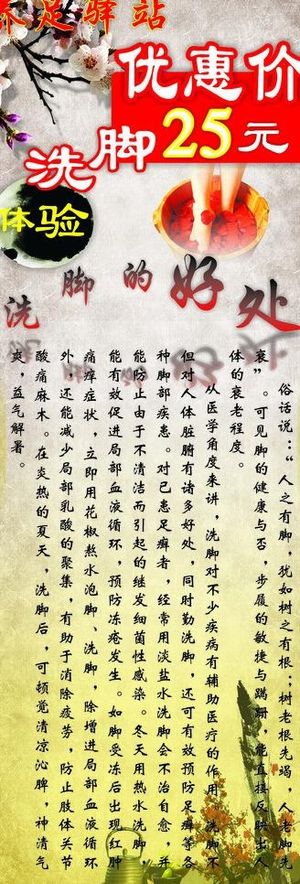 养足驿站
优惠价
洗脚25元
体验
洗脚的好处
俗话说：“人之有脚，犹如树之有根；树老根先竭，人老脚先
衰”。可见脚的健康与否，步履的敏捷与蹒跚，能直接反映出人
体的衰老程度。
从医学角度来讲，洗脚对不少疾病有辅助医疗的作用。洗脚不
但对人体脏腑有诸多好处，同时勤洗脚，还可有效预防足癣等各
种脚部疾患。对已患足癣者，经常用淡盐水洗脚会不治自愈，并
能防止由于不清洁而引起的继发细菌性感染。冬天用热水洗脚，
能有效促进局部血液循环，预防冻疮发生。如脚受冻后出现红肿
痛痒症状，立即用花椒熬水泡脚、洗脚，除增进局部血液循环
外，还能减少局部乳酸的聚集，有助于消除疲劳，防止肢体关节
酸痛麻木。在炎热的夏天，洗脚后，可顿觉清凉沁脾，神清气
爽，益气解暑。